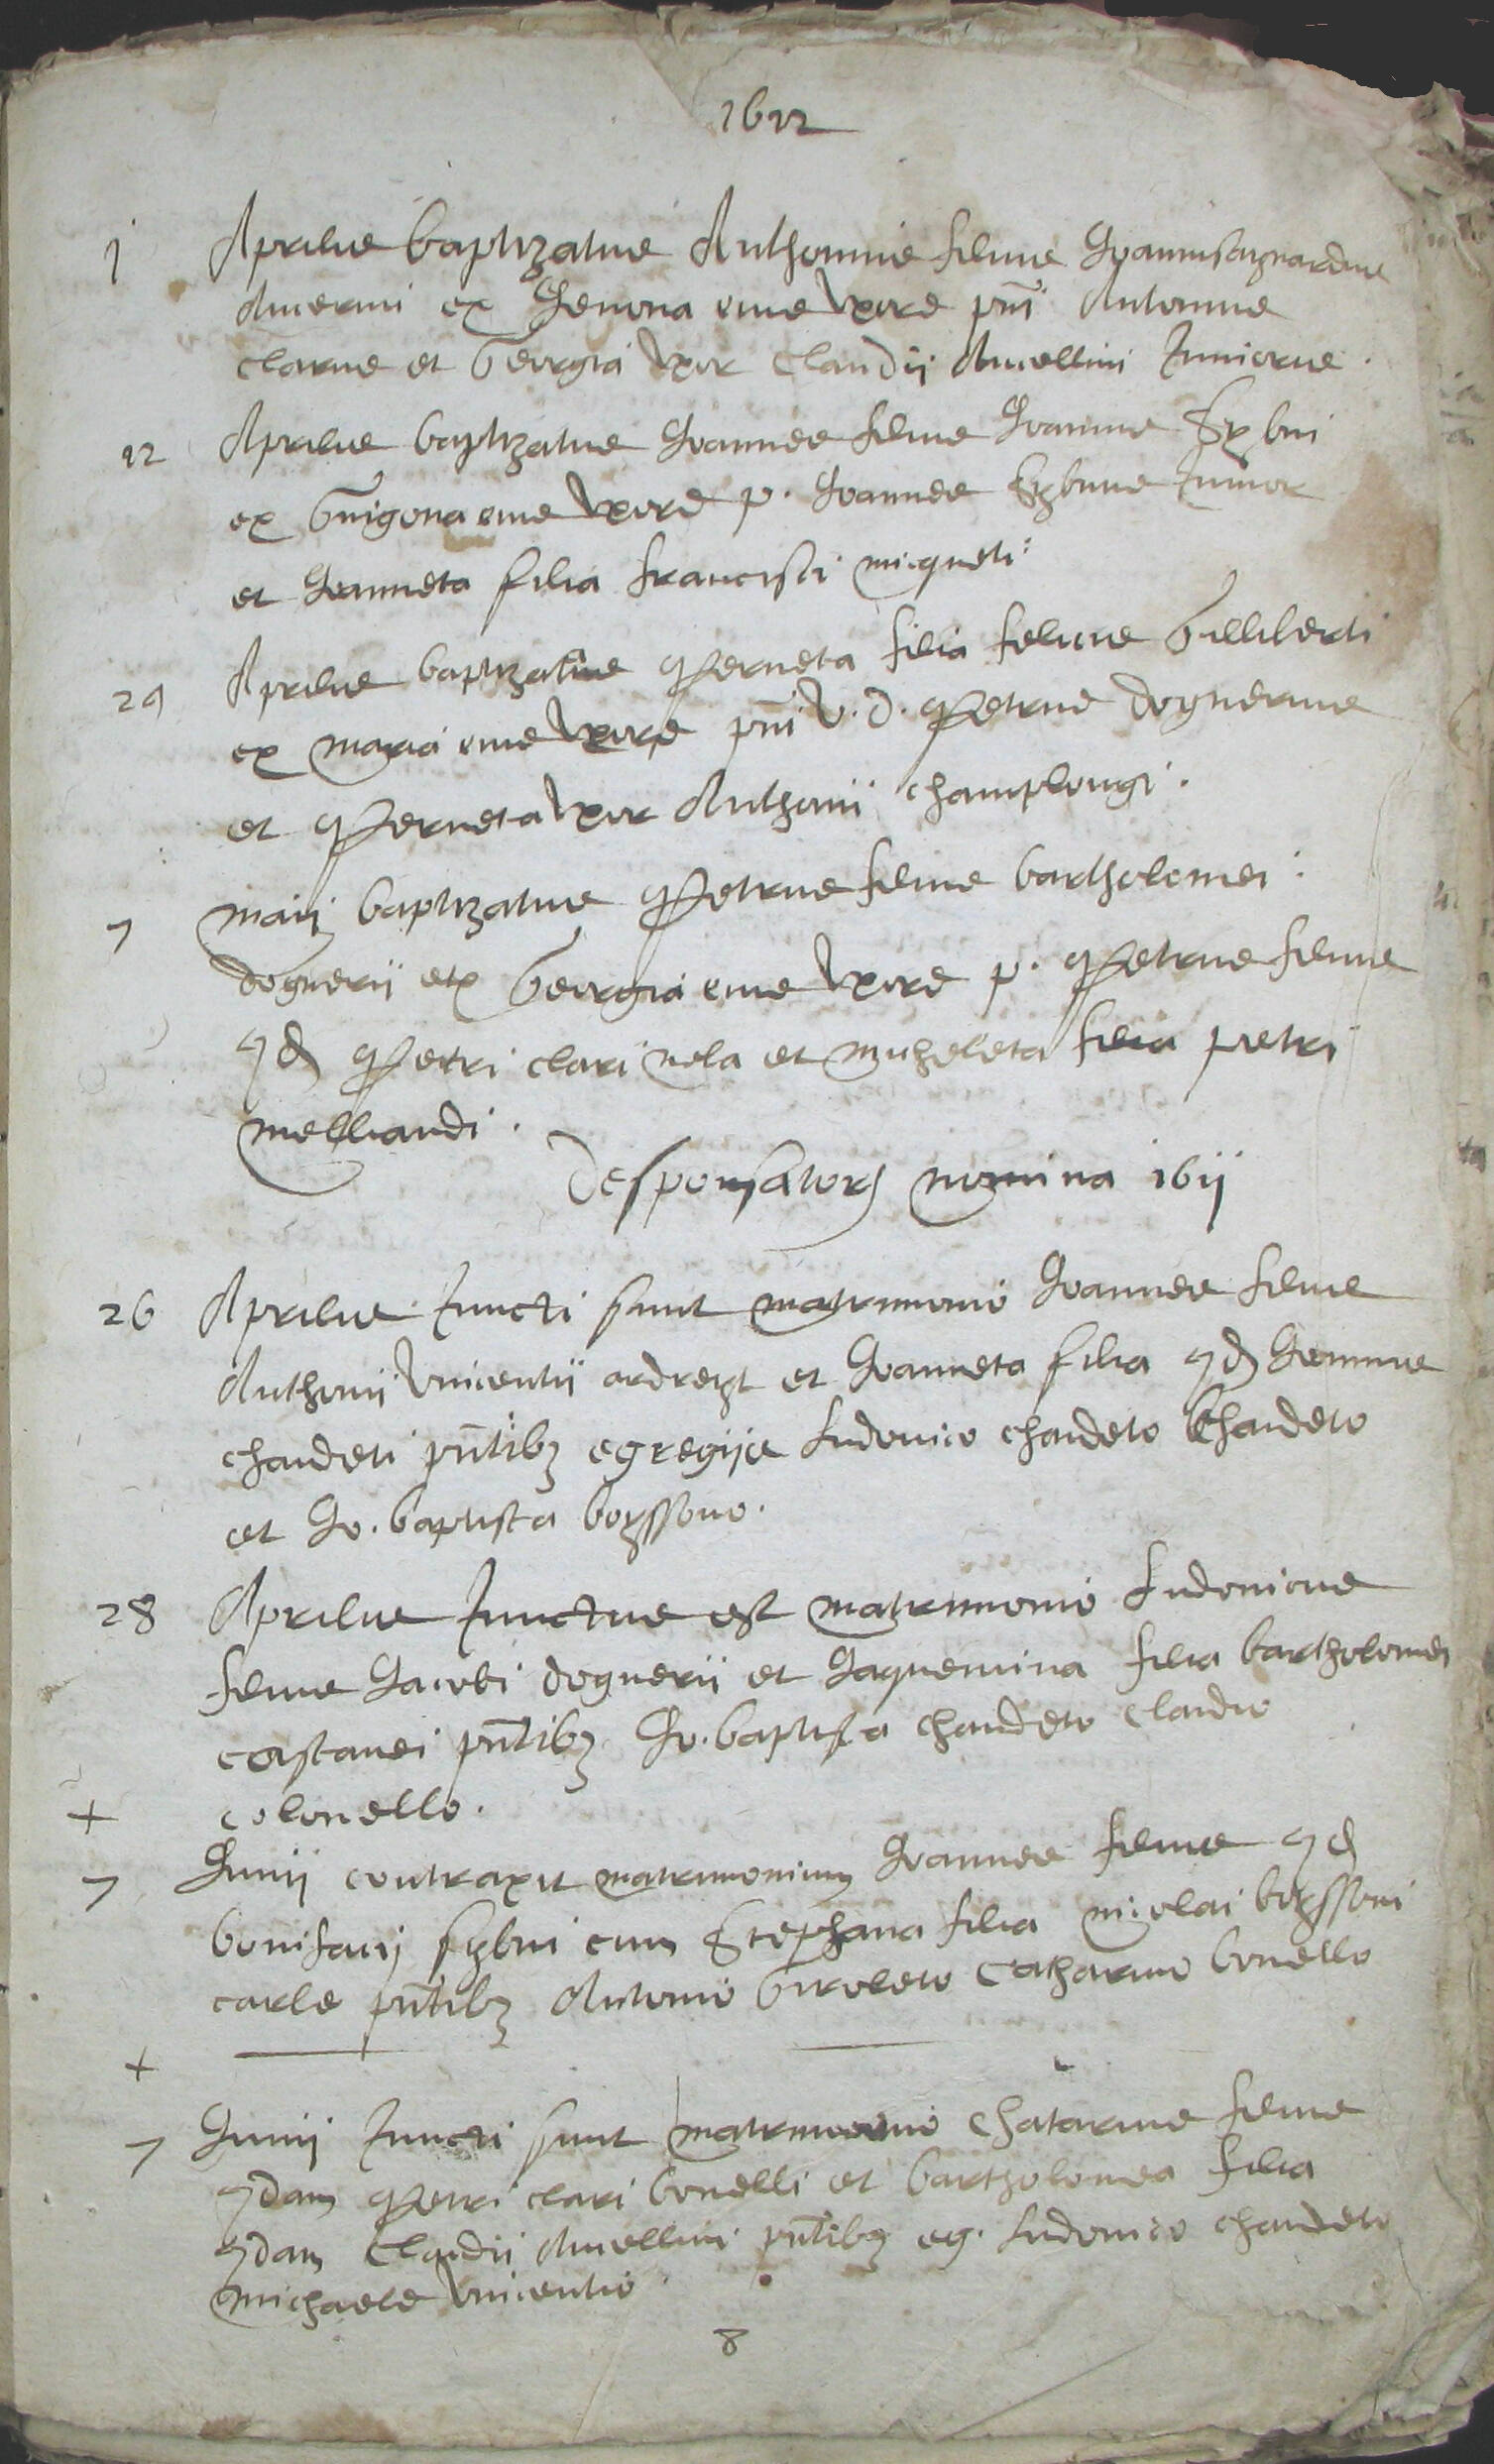 1612
1 Aprilis baptizatus Anthonius filius Joannis aynardus
Ancermi ex Genona eius Uxore pnti Antonius
Clarus et Georgia Uxor Claudii Ancellini Junioris.
12 Aprilis baptizatus Joannes filius Joannis Sybui
ex Guigona eius Uxore p. Joannes Sybuus Junior
et Joanneta filia francisci miqueti
29 Aprilis baptizatus Perneta filia felicis Gilliberti
ex maria eius Uxore pnti v. d. Petrus dognerius
et Perneta Uxor Anthonii champlongi.
7 maii baptizatus Petrus filius bartholomei
dognerii etx Georgia eius Uxore p. Petrus filius
qd Petri clari nola et micheleta filia petri
melliandi.
Desponsator nomina 1611
26 Aprilis Juncti sunt matrimonio Joannes filius
Anthonii Vincentii ardreyt et Joanneta filia qd Joannis
chandeti pntibz egregiis Ludovico chandeto Chandeto
et Jo. baptista boyssono.
28 Aprilis Junctus est matrimonio Ludovicus
filius Jacobi dognerii et Jaquemina filia bartholomei
castanei pntibz Jo. baptista chandeto claudio
+ colonello.
7 Junii contraxit matrimonium Joannes filius qd
bonifacii sybui cum Stephana filia nicolai boyssoni
carle pntibz Antonio Giroleto Catharino bonello
+
7 Junii Juncti sunt matrimonio Chatarinus filius
qdam Petri clari bonelli et bartholomea filia
qdam Claudii Ancellini pntibz eg. Ludovico chandeto
michaele Vincentio.
8